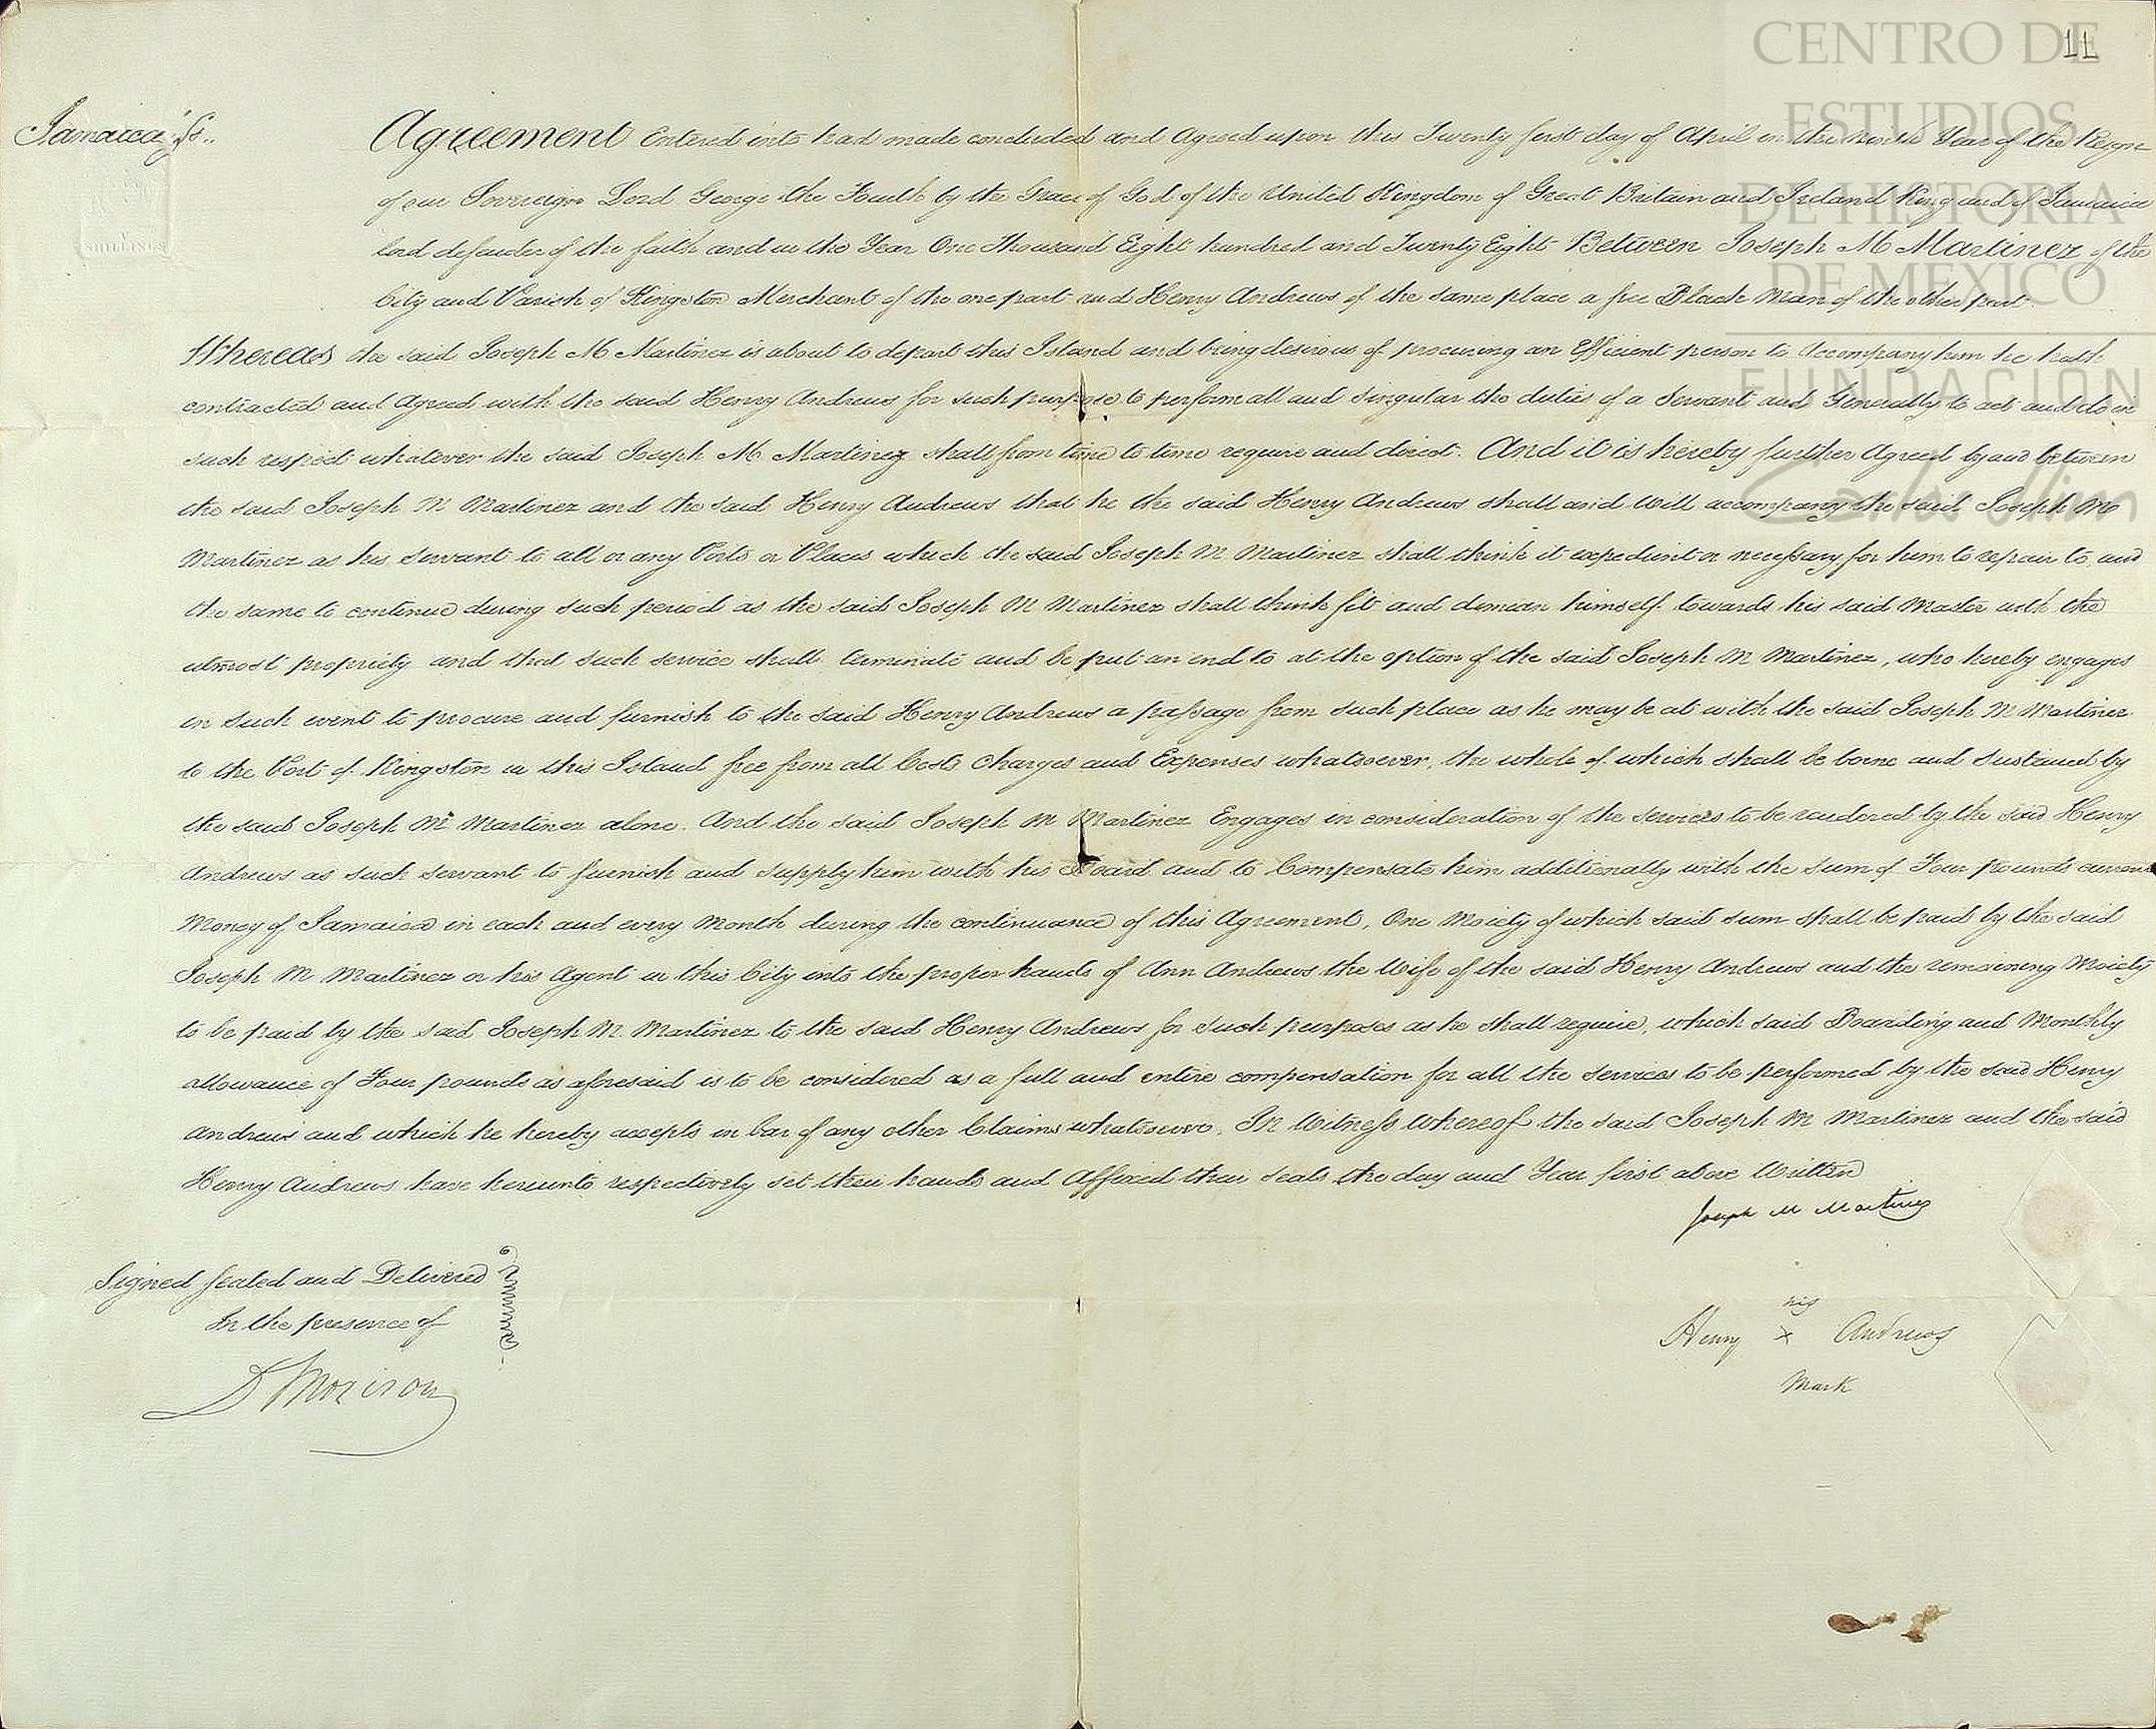 11
Jamaica Ss..
Agreement Entered into had made concluded and agreed upon this Twenty first day of April in the Ninth Year of the Reign
of our Sovereign Lord George the Fourth by the Grace of God of the United Kingdom of Great Britain and Ireland King and of Jamaica
lord defender of the faith and in the Year One Thousand Eight hundred and Twenty Eight Between Joseph M Martinez of the
City and Parish of Kingston Merchant of the one part and Henry Andrews of the same place a free Black Man of the other part.
Whereas the said Joseph M Martinez is about to depart this Island and being desirous of procuring an Efficient person to Accompany him he hath
contracted and Agreed with the said Henry Andrews for such purpose to perform all and singular the duties of a Servant and Generally to act and do in
such respect whatever the said Joseph M Martinez shall from time to time require and direct. And it is hereby further Agreed by and between
the said Joseph M Martinez and the said Henry Andrews that he the said Henry Andrews shall and Will accompany the said Joseph M
Martinez as his Servant to all or any Ports or Places which the said Joseph M Martinez shall think it expedient or necessary for him to repair to and
the same to continue during such period as the said Joseph M Martinez shall think fit and demean himself towards his said Master with the
utmost propriety and that such service shall terminate and be put an end to at the option of the said Joseph M Martinez, who hereby engages
in such event to procure and furnish to the said Henry Andrews a passage from such place as he may be at with the said Joseph M Martinez
to the Port of Kingston in this Island free from all Costs Charges and Expenses whatsoever, the whole of which shall be borne and sustained by
the said Joseph M Martinez alone. And the said Joseph M Martinez Engages in consideration of the services to be rendered by the said Henry
Andrews as such servant to furnish and supply him with his Board and to Compensate him additionally with the Sum of Four pounds current
Money of Jamaica in each and every Month during the continuance of this Agreement, One Moiety of which said sum shall be paid by the said
Joseph M Martinez or his Agent in this City into the proper hands of Ann Andrews the Wife of the said Henry Andrews and the remaining Moiety
to be paid by the said Joseph M. Martinez to the said Henry Andrews for such purposes as he shall require, which said Boarding and Monthly
allowance of Four pounds as aforesaid is to be considered as a full and entire compensation for all the services to be performed by the said Henry
Andrews and which he hereby accepts in bar of any other Claims whatsoever. In Witness Whereof the said Joseph M Martinez and the said
Henry Andrews have hereunto respectively set their hands and Affixed their seals the day and Year first above Written
Joseph M Martinez
Signed Sealed and Delivered
In the presence of
D Morison
his
Henry x Andrews
Mark
CENTRO DE
ESTUDIOS
DE HISTORIA
DE MEXICO
FUNDACIÓN
Carlos Slim
SHILLINGS